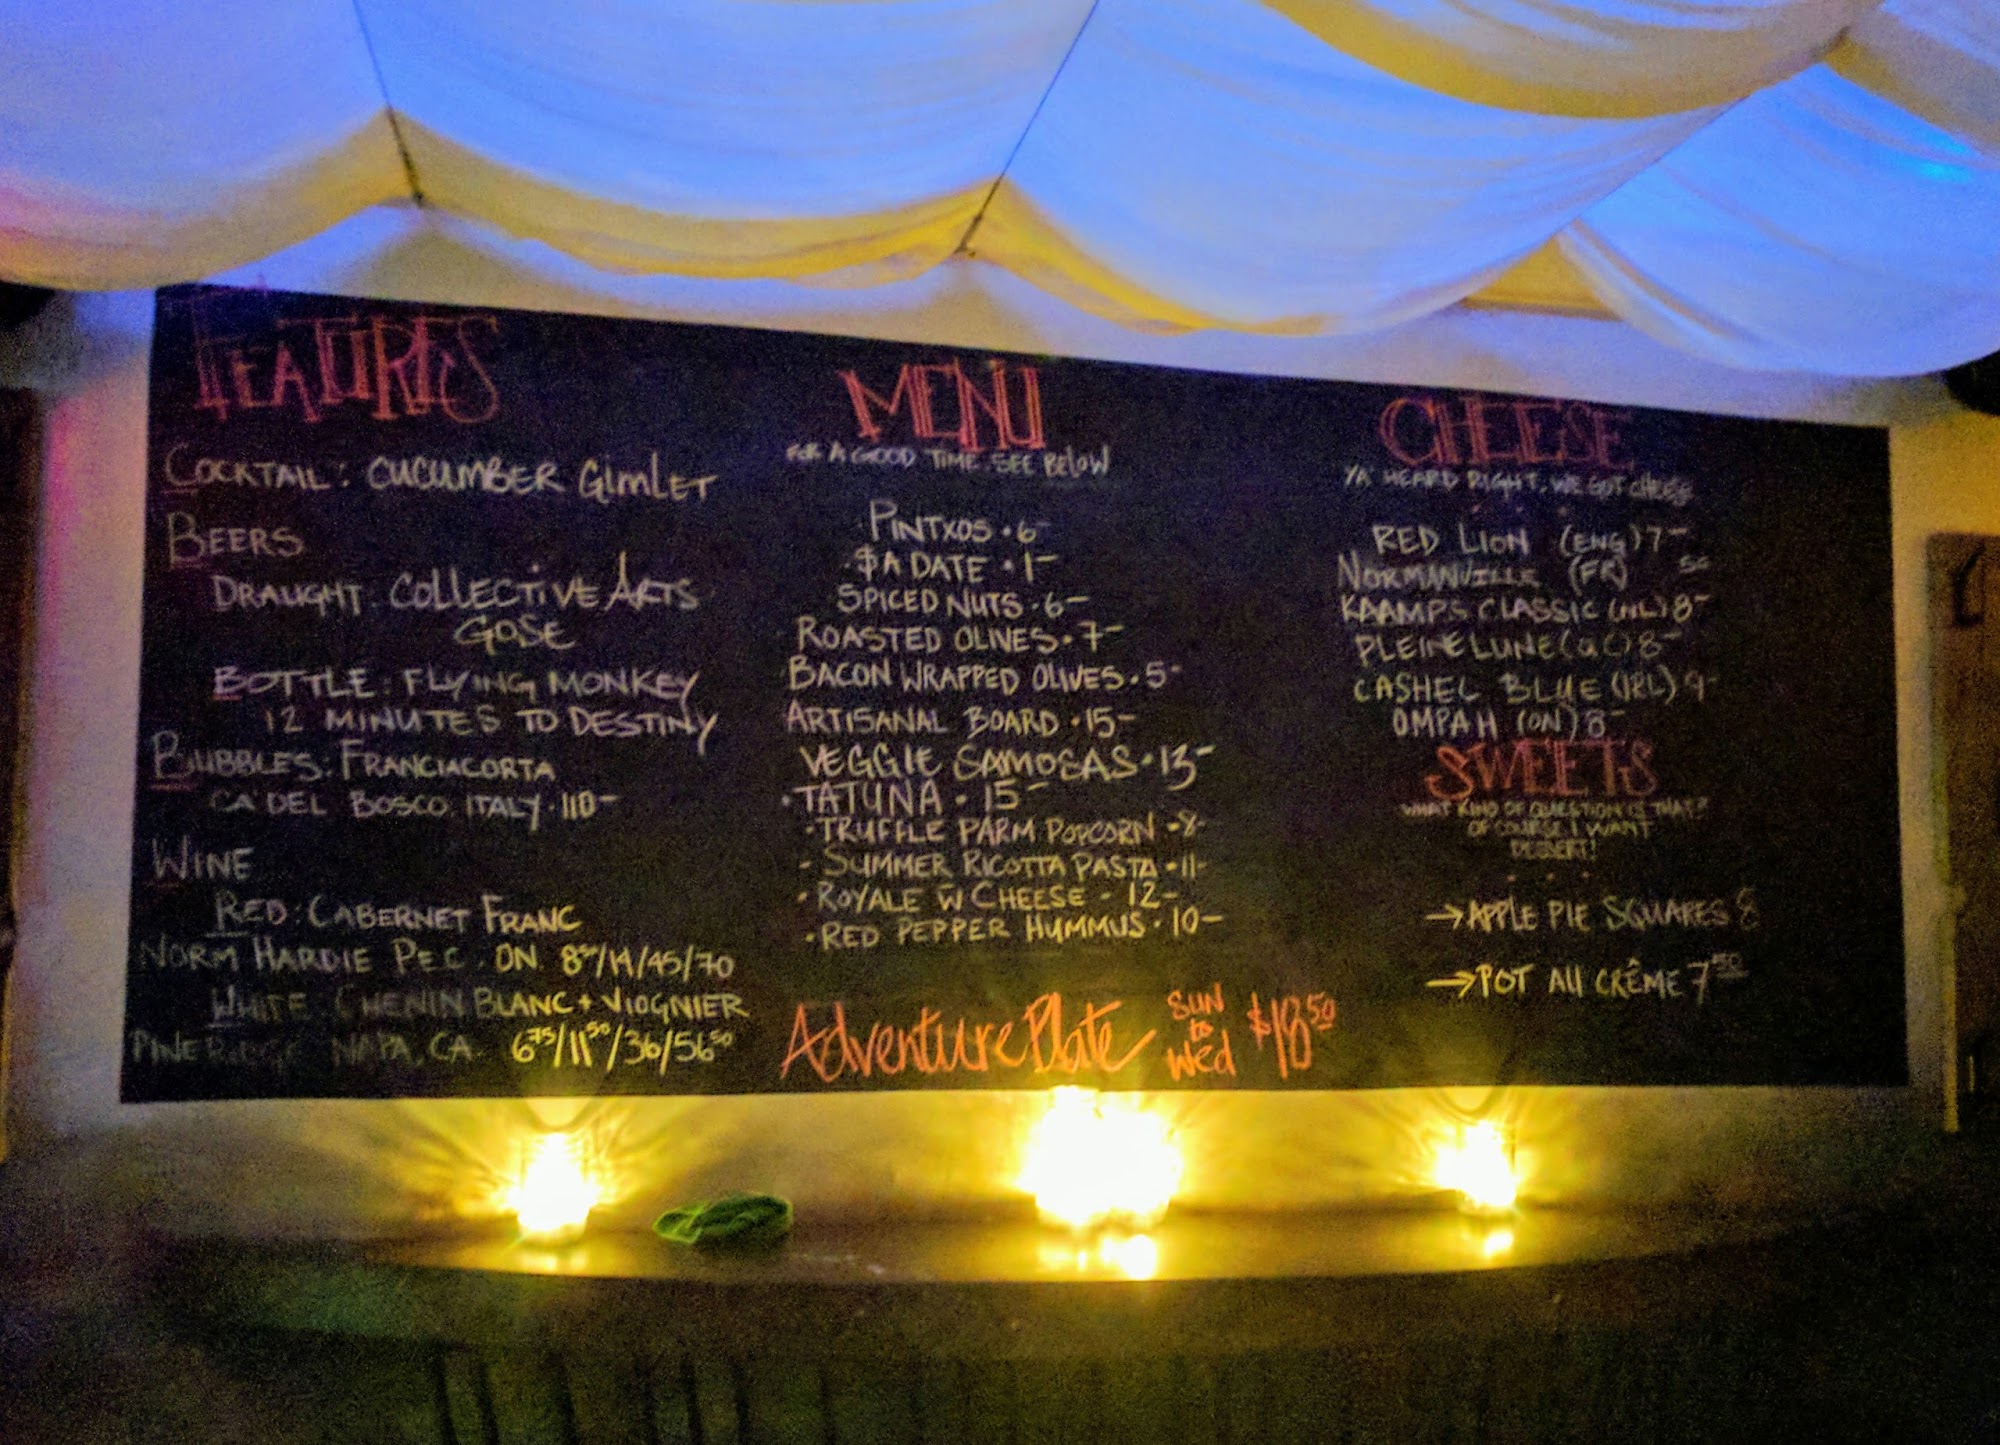 FEATURES
COCKTAIL: CUCUMBER GIMLET
BEERS
DRAUGHT: COLLECTIVE ARTS
GOSE
BOTTLE: FLYING MONKEY
12 MINUTES TO DESTINY
BUBBLES: FRANCIACORTA
CA'DEL BOSCO. ITALY · 110-
WINE
RED: CABERNET FRANC
NORM HARDIE PEC. ON. 8⁵⁰/14/45/70
WHITE: CHENIN BLANC + VIOGNIER
PINE RIDGE NAPA, CA. 6⁷⁵/11⁵⁰/36/56⁵⁰
MENU
FOR A GOOD TIME SEE BELOW
PINTXOS · 6-
$ A DATE · 1-
SPICED NUTS · 6-
ROASTED OLIVES · 7-
BACON WRAPPED OLIVES · 5-
ARTISANAL BOARD · 15-
VEGGIE SAMOSAS · 13-
· TATUNA · 15-
· TRUFFLE PARM POPCORN · 8-
- SUMMER RICOTTA PASTA · 11-
· ROYALE W CHEESE - 12-
· RED PEPPER HUMMUS · 10-
Adventure Plate SUN to Wed $18⁵⁰
CHEESE
YA' HEARD RIGHT, WE GOT CHEESE
RED LION (ENG) 7-
NORMANVILLE (FR)
KAAMPS CLASSIC (NL) 8-
PLEINE LUNE (QC) 8-
CASHEL BLUE (IRL) 9-
OMPAH (ON) 8-
SWEETS
WHAT KIND OF QUESTION IS THAT?
OF COURSE I WANT
DESSERT!
→ APPLE PIE SQUARES 8
→ POT AU CRÊME 7⁵⁰